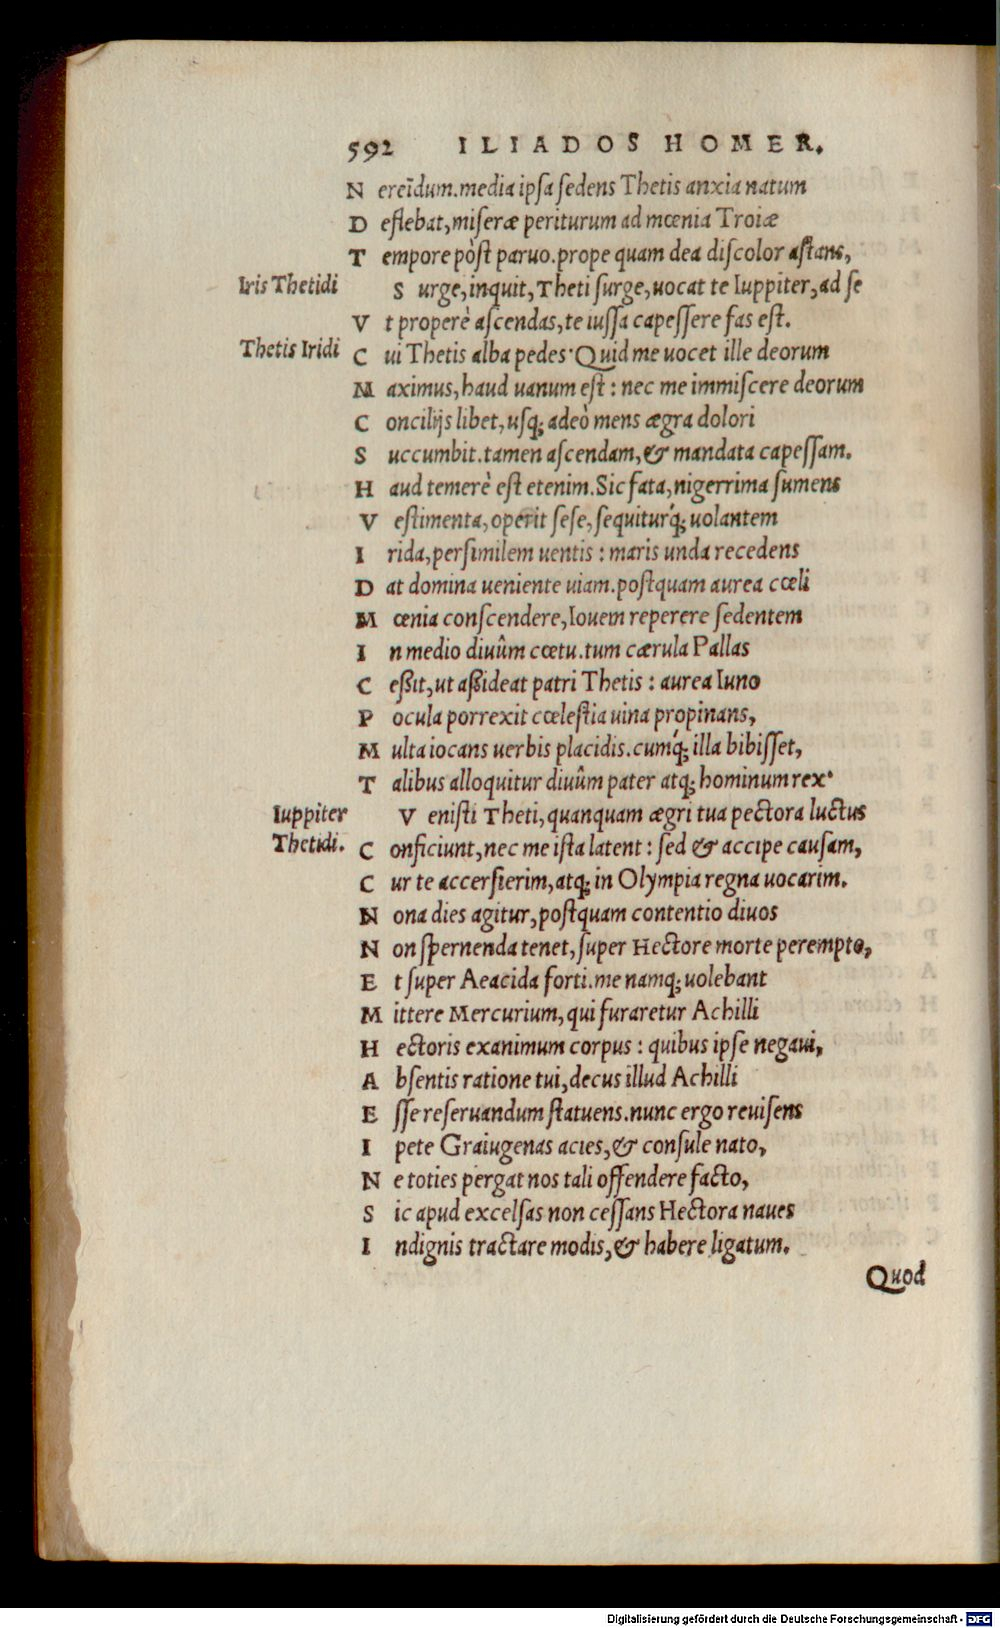 592 ILIADOS HOMER.
Nereïdum. media ipſa ſedens Thetis anxia natum
Deflebat, miſeræ periturum ad mœnia Troiæ
Tempore pòſt paruo. prope quam dea diſcolor aſtans,
Iris Thetidi Surge, inquit, Theti ſurge, uocat te Iuppiter, ad ſe
Vt properè aſcendas, te iuſſa capeſſere fas eſt.
Thetis Iridi Cui Thetis alba pedes· Quid me uocet ille deorum
Maximus, haud uanum eſt: nec me immiſcere deorum
Concilijs libet, uſq; adeò mens ægra dolori
Succumbit. tamen aſcendam, & mandata capeſſam.
Haud temerè eſt etenim. Sic fata, nigerrima ſumens
Veſtimenta, operit ſeſe, ſequiturq́; uolantem
Irida, perſimilem uentis: maris unda recedens
Dat domina ueniente uiam. poſtquam aurea cœli
Mœnia conſcendere, Iouem reperere ſedentem
In medio diuûm cœtu. tum cærula Pallas
Ceßit, ut aßideat patri Thetis: aurea Iuno
Pocula porrexit cœleſtia uina propinans,
Multa iocans uerbis placidis. cumq́; illa bibiſſet,
Talibus alloquitur diuûm pater atq; hominum rex·
Iuppiter Veniſti Theti, quanquam ægri tua pectora luctus
Thetidi. Conficiunt, nec me iſta latent: ſed & accipe cauſam,
Cur te accerſierim, atq; in Olympia regna uocarim.
Nona dies agitur, poſtquam contentio diuos
Non ſpernenda tenet, ſuper Hectore morte perempto,
Et ſuper Aeacida forti. me namq; uolebant
Mittere Mercurium, qui furaretur Achilli
Hectoris exanimum corpus: quibus ipſe negaui,
Abſentis ratione tui, decus illud Achilli
Eſſe reſeruandum ſtatuens. nunc ergo reuiſens
I pete Graiugenas acies, & conſule nato,
Ne toties pergat nos tali offendere facto,
Sic apud excelſas non ceſſans Hectora naues
Indignis tractare modis, & habere ligatum.
Quod
Digitalisierung gefördert durch die Deutsche Forschungsgemeinschaft - DFG